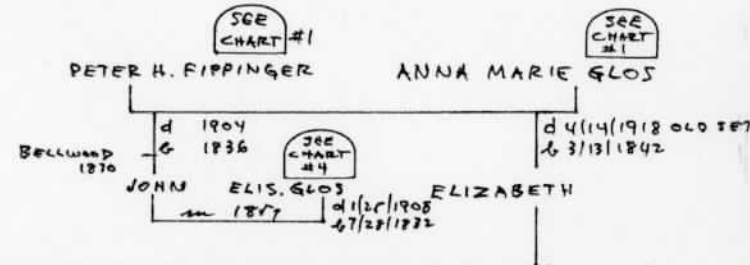 SEE CHART #1
SEE CHART #1
PETER H. FIPPINGER
ANNA MARIE GLOS
d 1904
b 1836
BELLWOOD 1870
SEE CHART #4
d 4/14/1918 OLD SET
b 3/13/1842
JOHN
ELIS. GLOS
ELIZABETH
m 1859
d 1/25/1908
b 7/28/1832